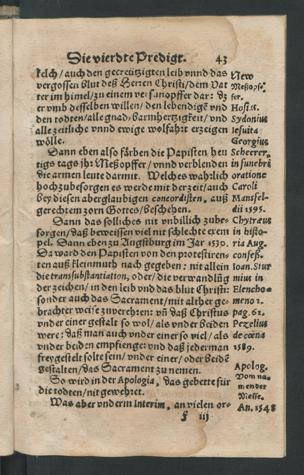 Die vierdte Predigt. 43
kelch / auch den gecreützigten leib vnnd das
vergossen blut deß Herren Christi / dem Vat
ter im himel / zu einem versönopffer dar: dz
er vmb desselben willen / den lebendigē vnd
den todten / alle gnad / barmhertzigkeit / vnd
alle zeitliche vnnd ewige wolfahrt erzeigen
wölle.
Dann eben also färben die Papisten heu
tigs tags jh: Meßopffer / vnnd verblenden
die armen leute darmit. Welches wahrlich
hochzubesorgen es werde mit der zeit / auch
bey diesen aberglaubigen concordisten, auß
gerechtem zorn Gottes / beschehen.
Dann das solliches nit vnbillich zube-
sorgen / daß beweissen viel nit schlechte exem
pel. Dann eben zu Augspurg im Jar 1530.
Da ward den Papisten von den protestiren
den auß kleinmuth nach gegeben: nit allein
die transubstantiation, oder / die verwandlūg
der zeichen / in den leib vnd das blut Christi:
sonder auch das Sacrament / mit alther ge-
brachter weise zuverehren: vn̄ daß Christus
vnder einer gestalt so wol / als vnder beiden
were: daß man auch vnder einer so viel / als
vnder beiden empfienge: vnd daß jederman
freygestelt solte sein / vnder einer / oder beidē
gestalten / das Sacrament zu nemen.
So wird in der Apologia, das gebette für
die todten / nit gewehret.
Was aber vnderm Interim, an vielen or-
f iij
New
Meßopf-
fer.
Hostis.
Sydonius
Iesuita
Georgius
Scherer,
in funebri
oratione
Caroli
Mansfel-
dii 1595.
Chytræus
in histo-
ria Aug.
confess.
Ioan. Stur
mius in
Elencho-
meno 2.
pag. 61.
Pezelius
de cœna
1589.
Apolog.
Vom na-
men der
Messe.
An. 1548